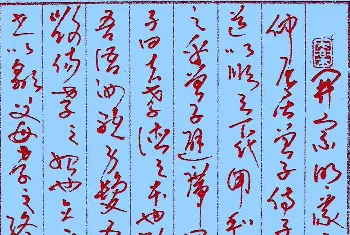 開宗明義
仲尼居曾子侍子
道以順天下民用和
之乎曾子避席曰
子曰夫孝德之本也
吾語汝身體髮膚
毀傷孝之始也立
世以顯父母孝之終